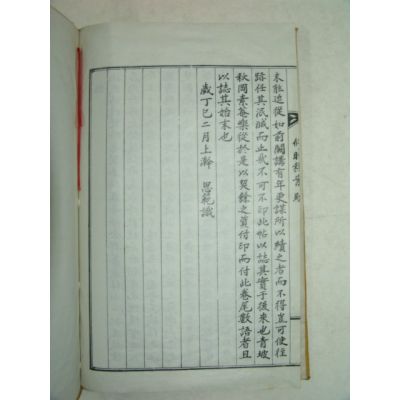 未能追從如前閣講有年更謀所以續之者而不得豈可使往
跡任其泯滅而止哉不可不印此帖以誌其實于後來也青坡
秋岡素菴樂從於是以契餘之資付印而付此卷尾數語者且
以誌其始末也
歲丁巳二月上澣 思範識